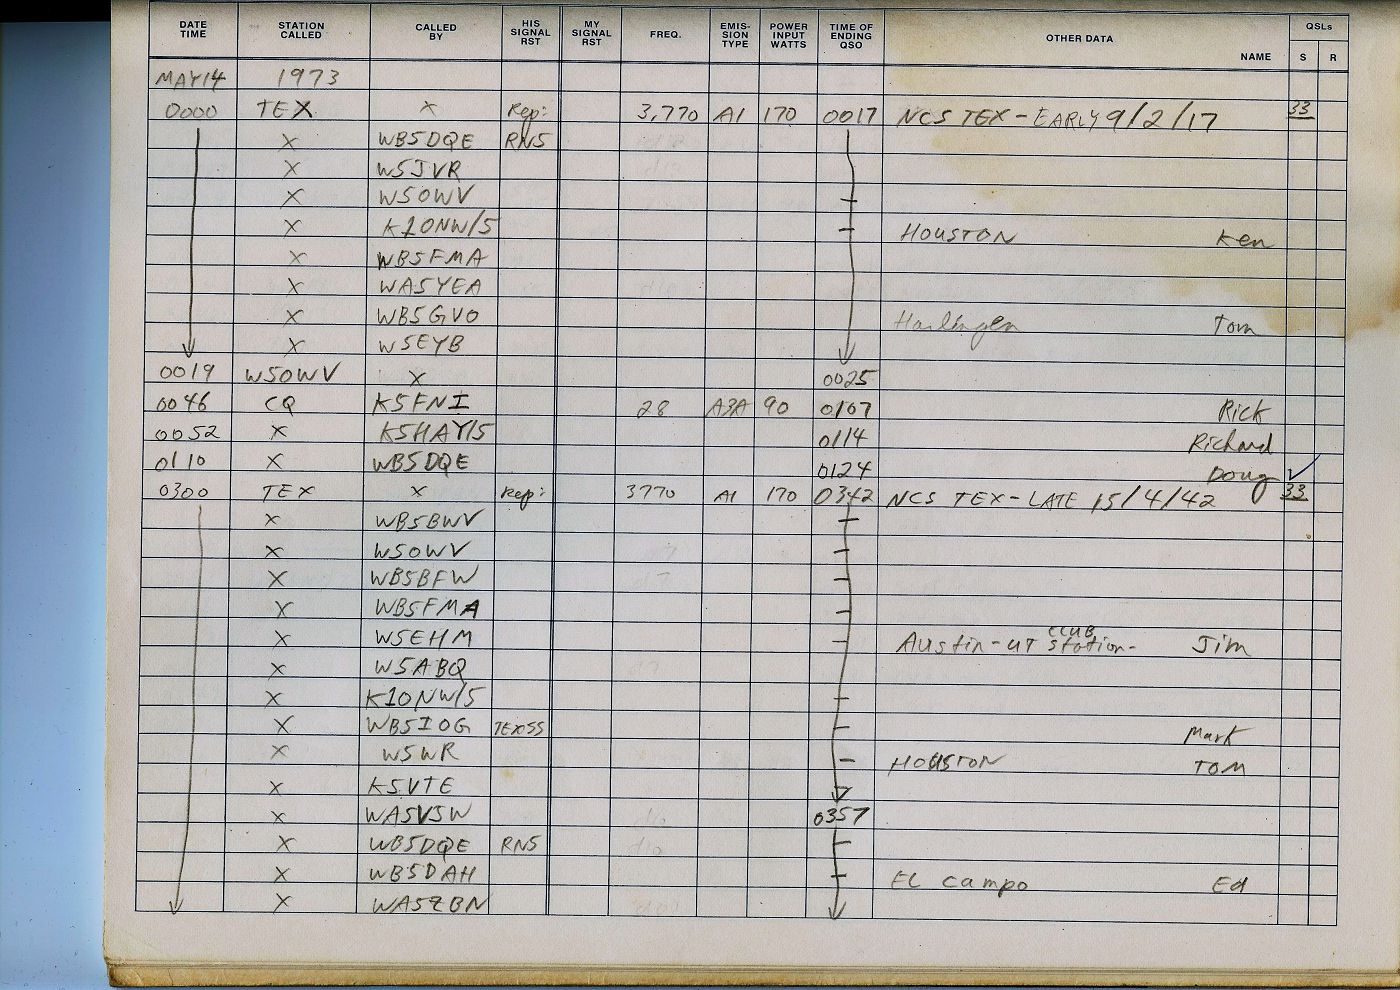 DATE TIME STATION CALLED CALLED BY HIS SIGNAL RST MY SIGNAL RST FREQ. EMIS- SION TYPE POWER INPUT WATTS TIME OF ENDING QSO OTHER DATA NAME QSLs S R
MAY 14 1973
0000 TEX X Rep: 3,770 A1 170 0017 NCS TEX - EARLY 9/2/17 33
X WB5DQE RN5
X W5JVR
X W5OWV
X K1ONW/5 HOUSTON Ken
X WB5FMA
X WA5YEA
X WB5GVO Harlingen Tom
X W5EYB
0019 W5OWV X 0025
0046 CQ K5FNI 28 A3A 90 0107 Rick
0052 X K5HAY/5 0114 Richard
0110 X WB5DQE 0124 Doug ✓
0300 TEX X Rep: 3770 A1 170 0342 NCS TEX - LATE 15/4/42 33
X WB5BWV
X W5OWV
X WB5BFW
X WB5FMA
X W5EHM Austin - UT CLUB Station - Jim
X W5ABQ
X K1ONW/5
X WB5IOG TEXSS Mark
X W5WR HOUSTON TOM
X K5VTE
X WA5VSW 0357
X WB5DQE RN5
X WB5DAH EL Campo Ed
X WA5ZBN